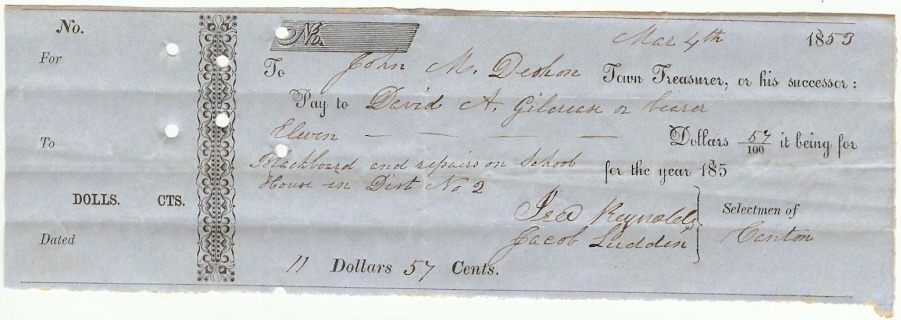 No.
For
To
DOLLS. CTS.
Dated
No.
Mar 4th 1853
To John M. Deshon Town Treasurer, or his successor:
Pay to David A. Gilbreth or bearer
Eleven — — — — Dollars 57/100 it being for
Blackboard and repairs on School for the year 185
House in Dist No. 2
Geo Reynolds
Jacob Ludden
Selectmen of
Canton
11 Dollars 57 Cents.